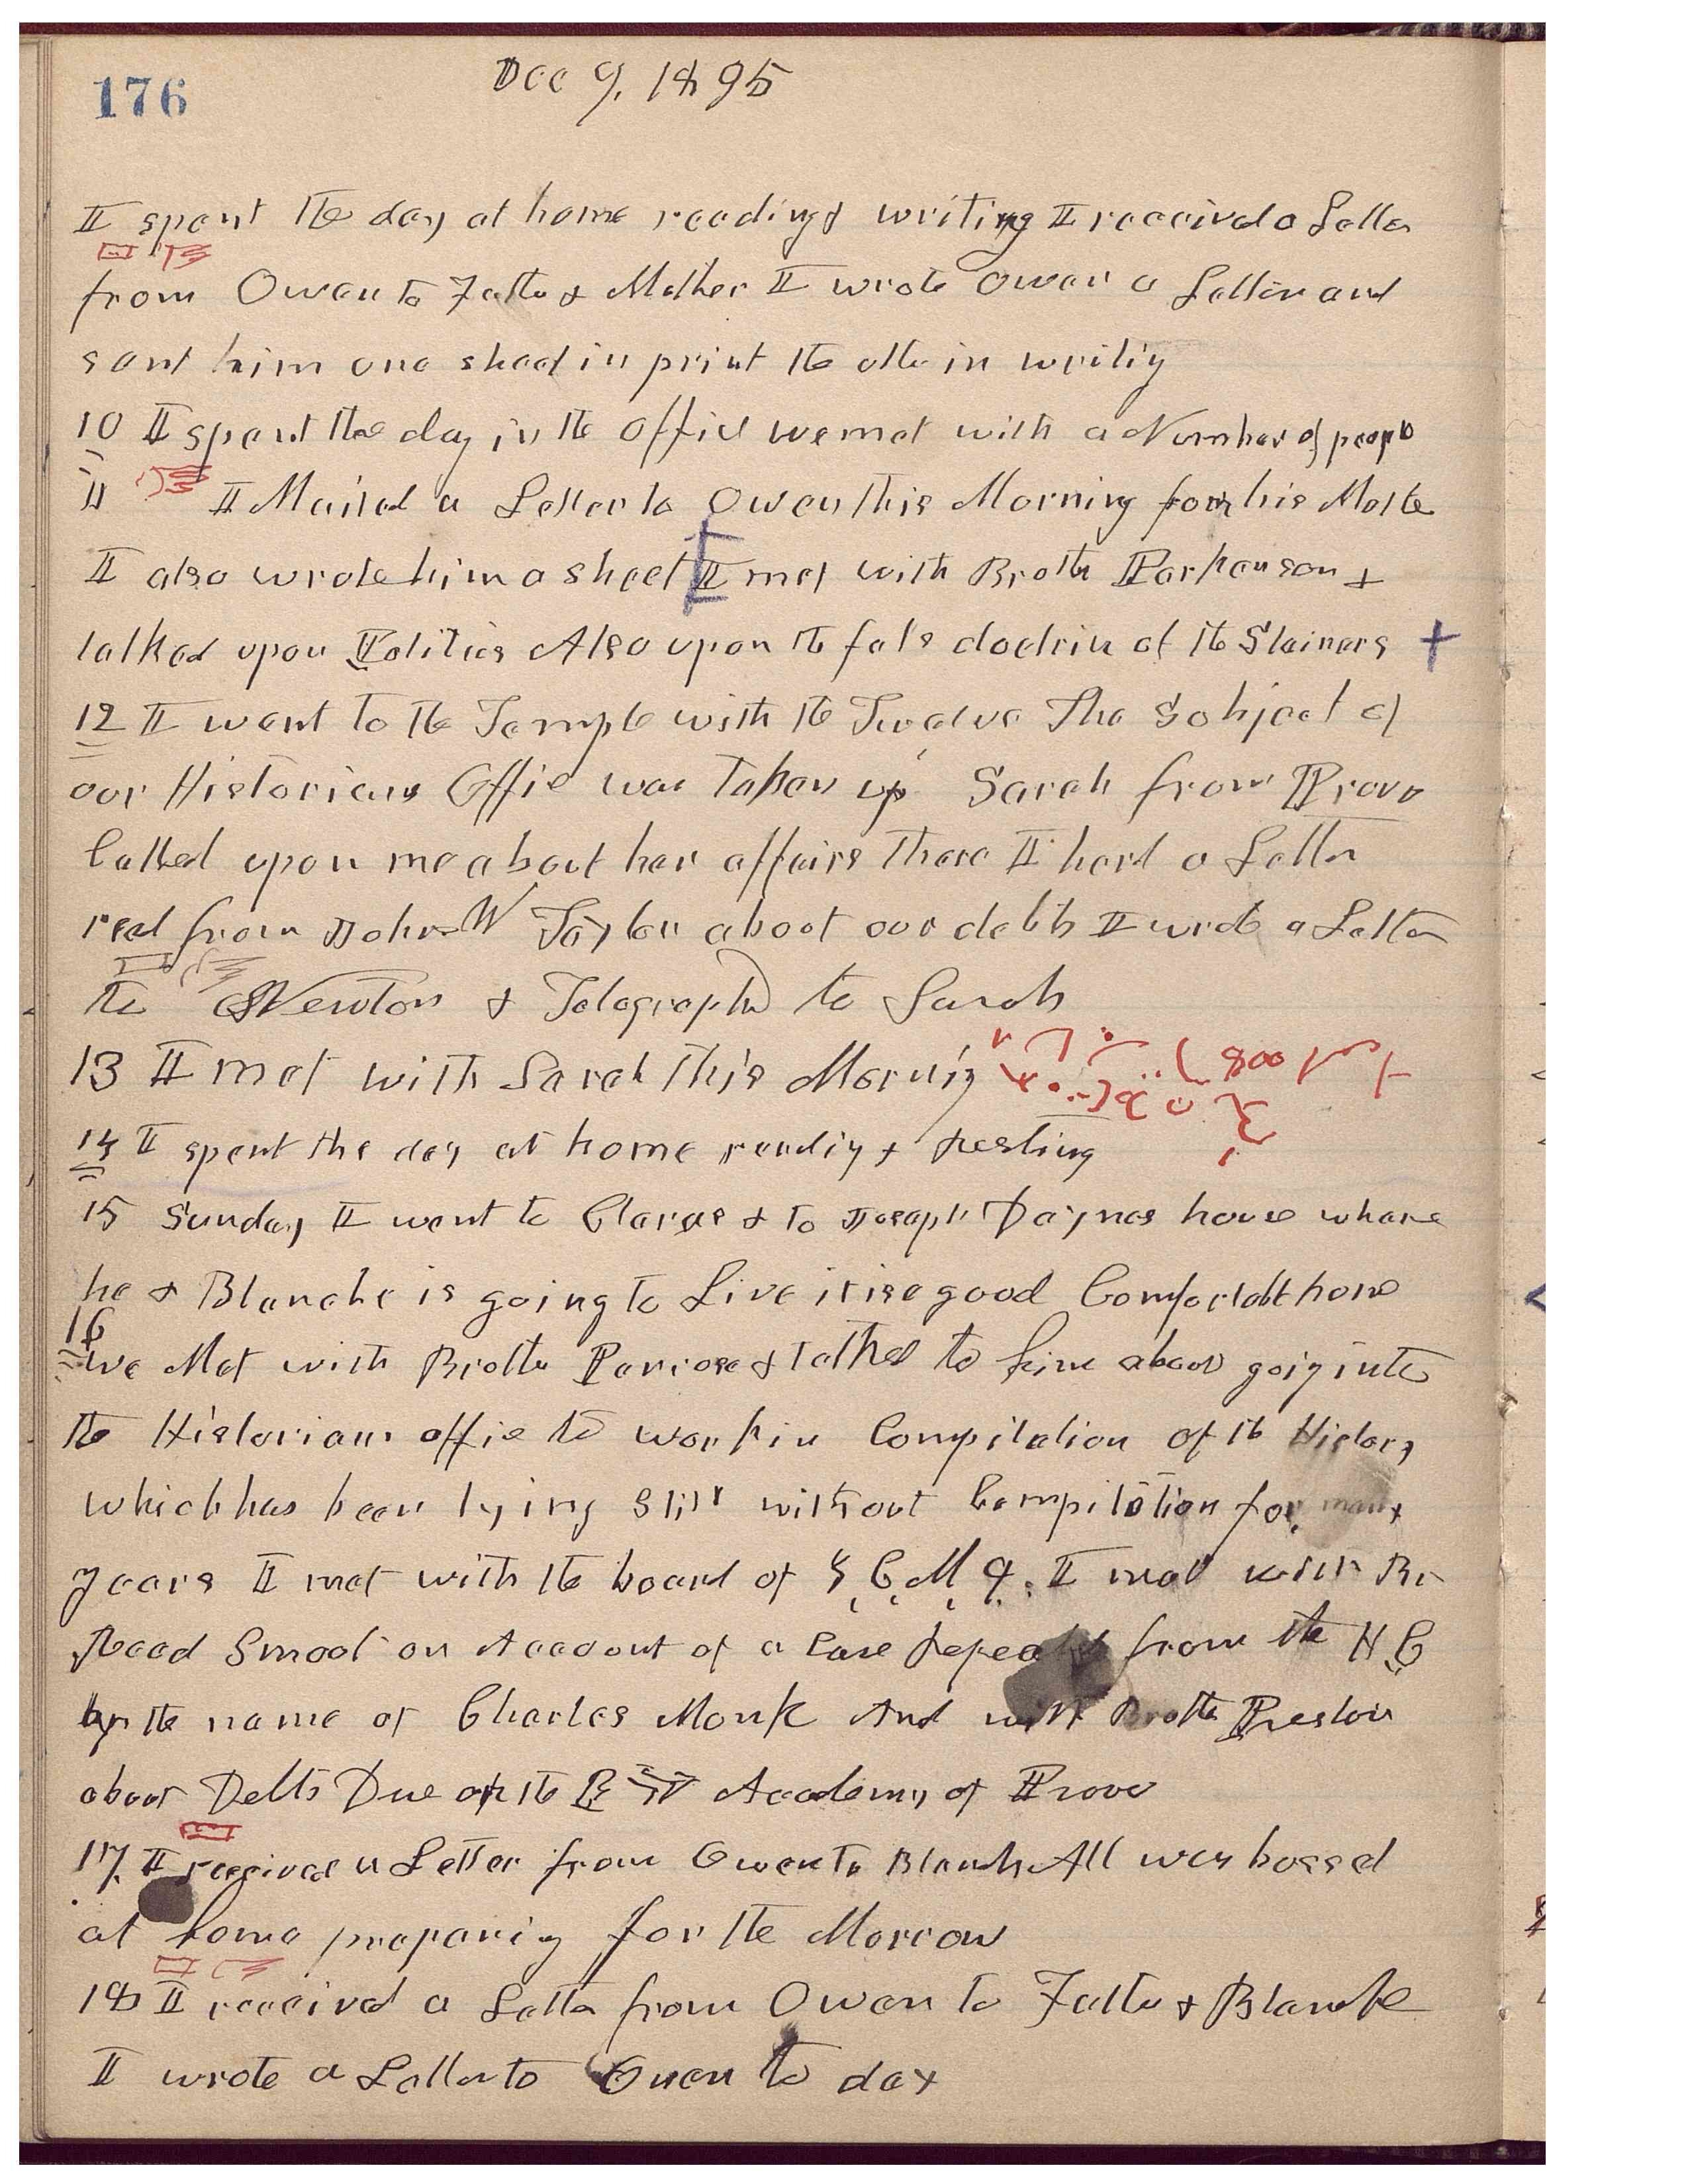 176
Dec 9, 1895
I spent the day at home reading & writing I received a Letter
from Owen to Father & Mother I wrote Owen a Letter and
sent him one sheet in print the other in writing
10 I spent the day in the office we met with a Number of people
11 I Mailed a Letter to Owen this Morning from his Mother
I also wrote him a sheet [I met with Brother Parkenson &
talked upon Politics Also upon the fals doctrin of the Stainers +
12 I went to the Temple with the Twelve The Subject of
our Historians Office was taken up Sarah from Provo
Called upon me about her affairs there I herd a Letter
red from John W Taylor about our debts I wrote a Letter
to Newton & Telegraphd to Sarah
13 I met with Sarah this Morning 800
14 I spent the day at home reading & resting
15 Sunday I went to Claras & to Joseph Daynes house where
he & Blanche is going to Live it is a good Comfortable home
16
we Met with Brother Penrose & talked to him about going into
the Historians office to work in Compilation of the History
which has been lying still without Compilation for many
years I met with the board of Z C M I. I met with Br
Reed Smoot on Account of a Case from the H C
by the name of Charles Monk And with Brother Preston
about Debts Due of the B Y Academy of Provo
17. I received a Letter from Owen to Blanch All was bossed
at home preparing for the Morrow
18 I received a Letter from Owen to Father & Blanche
I wrote a Letter to Owen to day